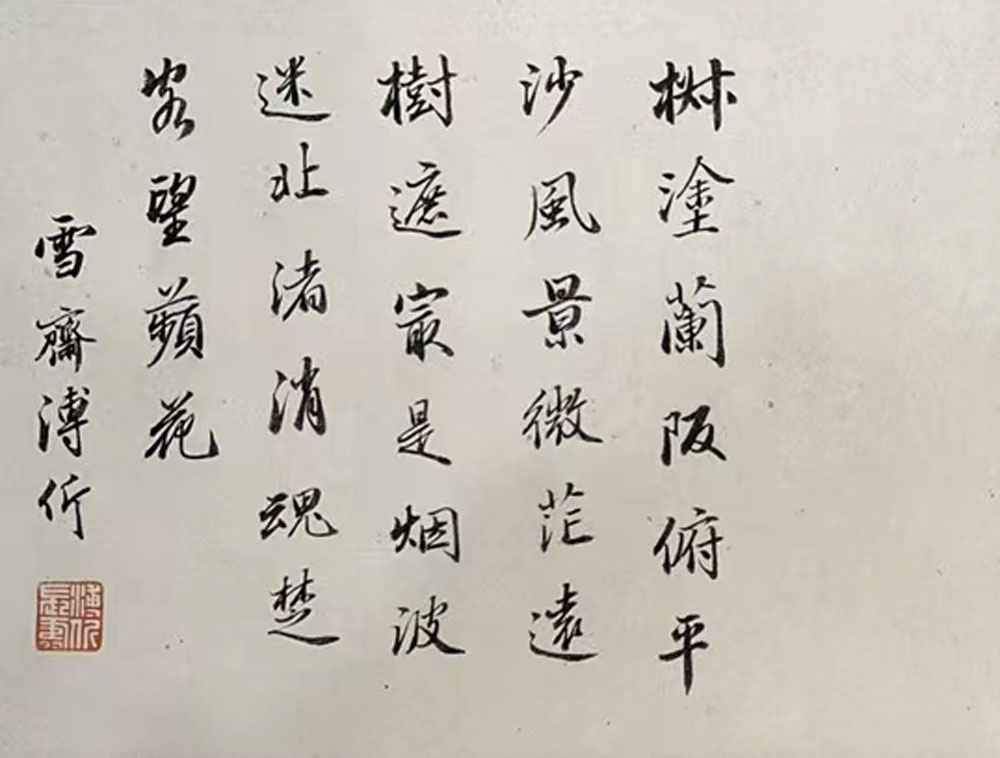 椒塗蘭阪俯平
沙風景微茫遠
樹遮最是烟波
迷北渚消魂楚
客望蘋花
雪齋溥伒